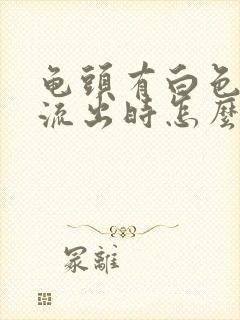 龟頭有白色
流出時怎麼
冢離